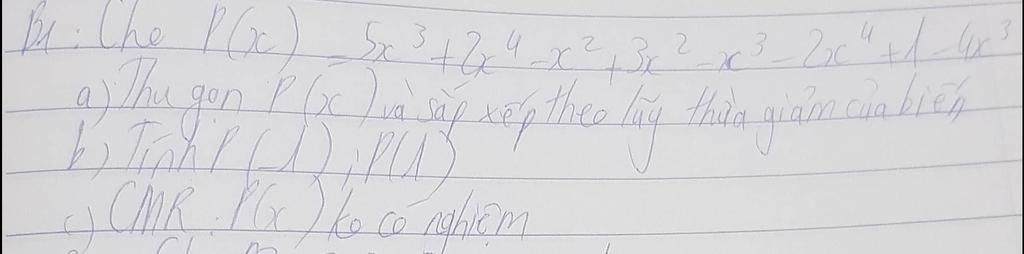 B1: Cho P(x) = 5x³ + 2x⁴ - x² + 3x² - x³ - 2x⁴ + 1 - 4x³
a) Thu gọn P(x) và sắp xếp theo lũy thừa giảm của biến
b) Tính P(-1); P(1)
c) CMR: P(x) ko có nghiệm